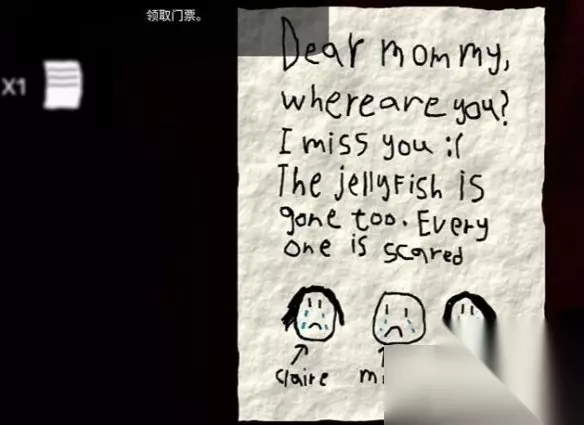 领取门票。
X1
Dear mommy,
where are you?
I miss you :(
The jellyfish is
gone too. Every
one is scared
Claire